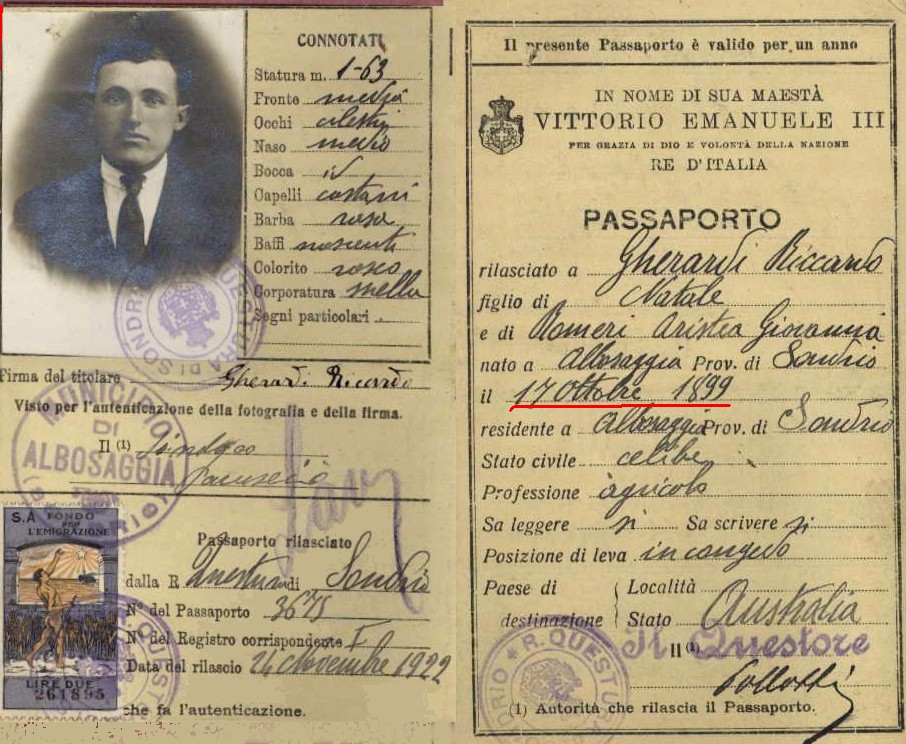 CONNOTATI
Statura m. 1-63
Fronte media
Occhi celesti
Naso medio
Bocca id
Capelli castani
Barba rasa
Baffi nascenti
Colorito roseo
Corporatura snella
Segni particolari
Firma del titolare Gherardi Riccardo
Visto per l'autenticazione della fotografia e della firma.
Il (1) Sindaco
MUNICIPIO
DI
ALBOSAGGIA
S.A FONDO
PER
L'EMIGRAZIONE
LIRE DUE
261895
Passaporto rilasciato
dalla R. Questura di Sondrio
N° del Passaporto 3675
N° del Registro corrispondente I
Data del rilascio 24 Novembre 1922
che fa l'autenticazione.
Il presente Passaporto è valido per un anno
IN NOME DI SUA MAESTÀ
VITTORIO EMANUELE III
PER GRAZIA DI DIO E VOLONTÀ DELLA NAZIONE
RE D'ITALIA
PASSAPORTO
rilasciato a Gherardi Riccardo
figlio di Natale
e di Romeri Aristea Giovanna
nato a Albosaggia Prov. di Sondrio
il 17 Ottobre 1899
residente a Albosaggia Prov. di Sondrio
Stato civile celibe
Professione agricola
Sa leggere si Sa scrivere si
Posizione di leva in congedo
Paese di destinazione Località
Stato Australia
Il (1) Il Questore
R. QUESTURA
(1) Autorità che rilascia il Passaporto.